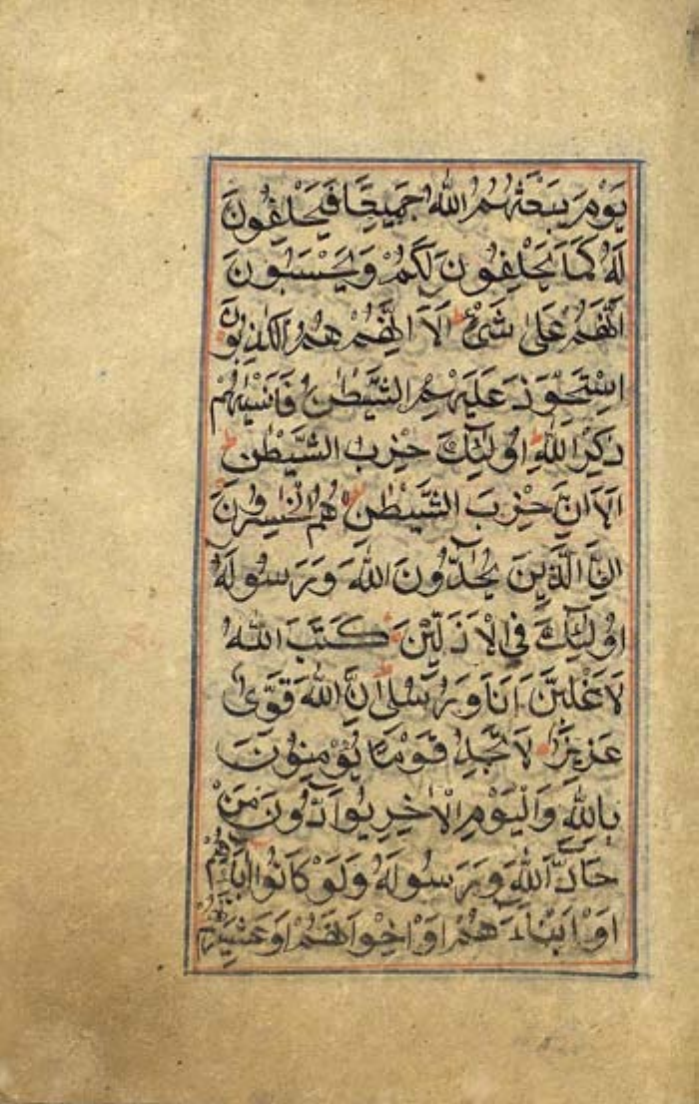 يَوْمَ يَبْعَثُهُمُ اللهُ جَمِيعًا فَيَحْلِفُونَ
لَهُ كَمَا يَحْلِفُونَ لَكُمْ وَيَحْسَبُونَ
اَنَّهُمْ عَلٰى شَيْءٍ اَلَا اِنَّهُمْ هُمُ الْكٰذِبُونَ
اِسْتَحْوَذَ عَلَيْهِمُ الشَّيْطٰنُ فَاَنْسٰيهُمْ
ذِكْرَ اللهِ اُولٰئِكَ حِزْبُ الشَّيْطٰنِ
اَلَا اِنَّ حِزْبَ الشَّيْطٰنِ هُمُ الْخٰسِرُونَ
اِنَّ الَّذِينَ يُحَادُّونَ اللهَ وَرَسُولَهُ
اُولٰئِكَ فِي الْاَذَلِّينَ كَتَبَ اللهُ
لَاَغْلِبَنَّ اَنَا وَرُسُلِى اِنَّ اللهَ قَوِىٌّ
عَزِيزٌ لَا تَجِدُ قَوْمًا يُؤْمِنُونَ
بِاللهِ وَالْيَوْمِ الْاٰخِرِ يُوَادُّونَ مَنْ
حَادَّ اللهَ وَرَسُولَهُ وَلَوْ كَانُوا اٰبَاءَهُمْ
اَوْ اَبْنَاءَهُمْ اَوْ اِخْوَانَهُمْ اَوْ عَشِيرَتَهُمْ